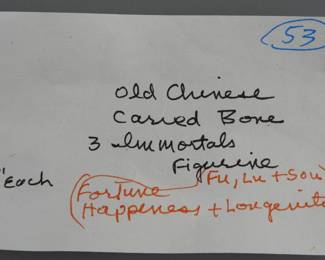 53
Old Chinese
Carved Bone
3 Immortals
Figurine
"Each
Fu, Lu + Sou
Fortune
Happeness + Longevit